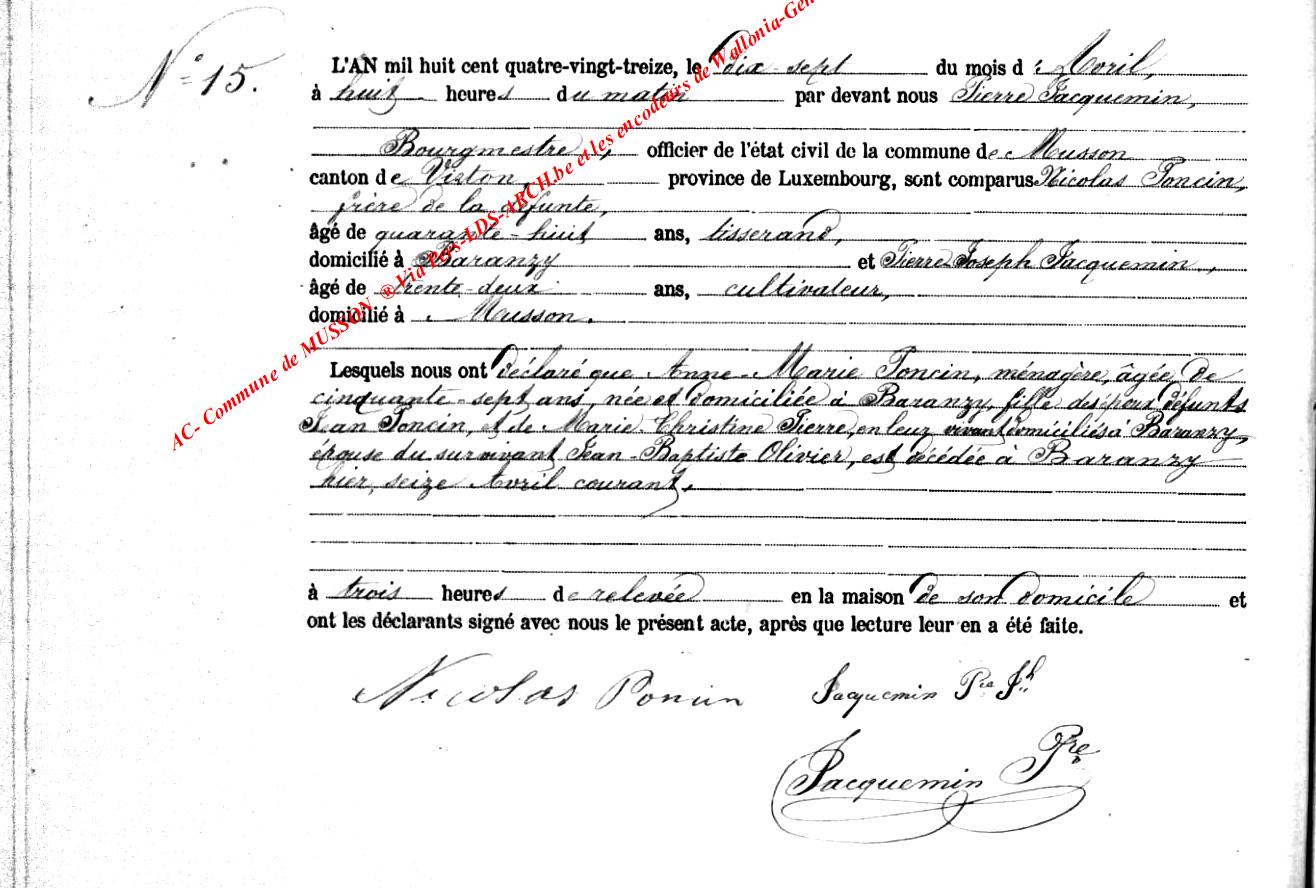 N° 15.
L'AN mil huit cent quatre-vingt-treize, le dix sept du mois d'Avril,
à huit heures du matin par devant nous Pierre Jacquemin,
Bourgmestre, officier de l'état civil de la commune de Musson
canton de Virton, province de Luxembourg, sont comparus Nicolas Poncin,
frère de la défunte,
âgé de quarante-huit ans, tisserand,
domicilié à Baranzy et Pierre Joseph Jacquemin,
âgé de trente-deux ans, cultivateur,
domicilié à Musson.
Lesquels nous ont déclaré que Anne-Marie Poncin, ménagère, âgée de
cinquante-sept ans, née et domiciliée à Baranzy, fille des époux défunts
Jean Poncin, et de Marie-Christine Pierre, en leur vivant domiciliés à Baranzy,
épouse du survivant Jean-Baptiste Olivier, est décédée à Baranzy
hier, seize Avril courant,
à trois heures de relevée en la maison de son domicile et
ont les déclarants signé avec nous le présent acte, après que lecture leur en a été faite.
Nicolas Poncin Jacquemin Pre Jh
Jacquemin Pre
AC- Commune de MUSSON ® Via Pays-LDS-ARCH.be et les encodeurs de Wallonia-Gen